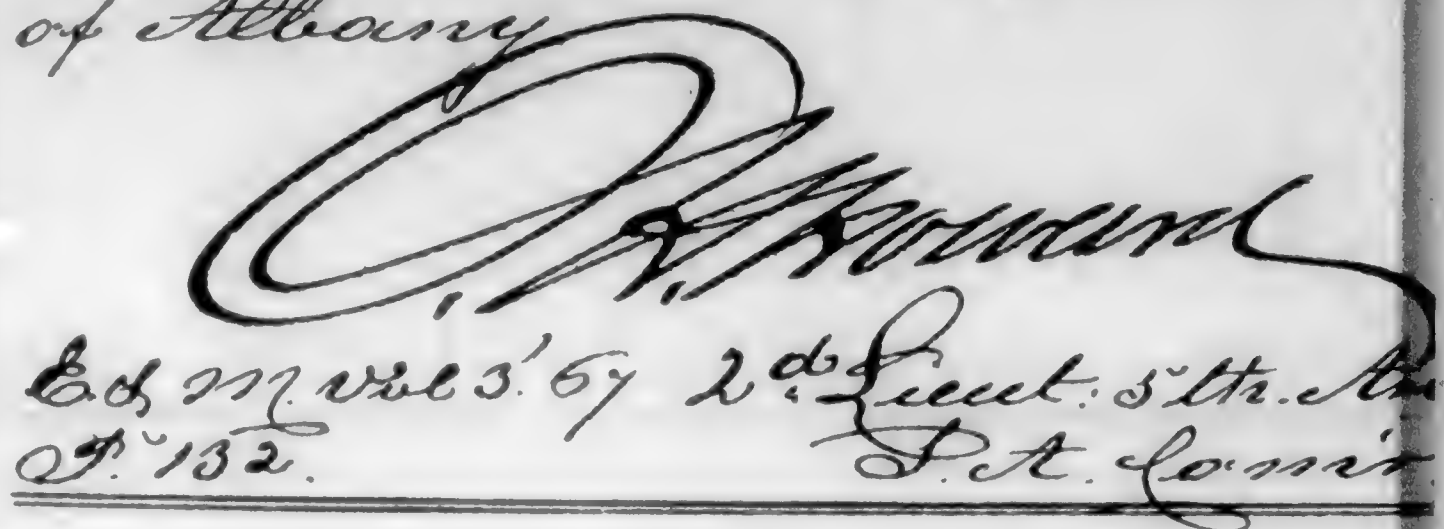 of Albany
E & M. Vol 3. 67 2d. Lieut. 5th. Ar
P. 132. S. A. Com